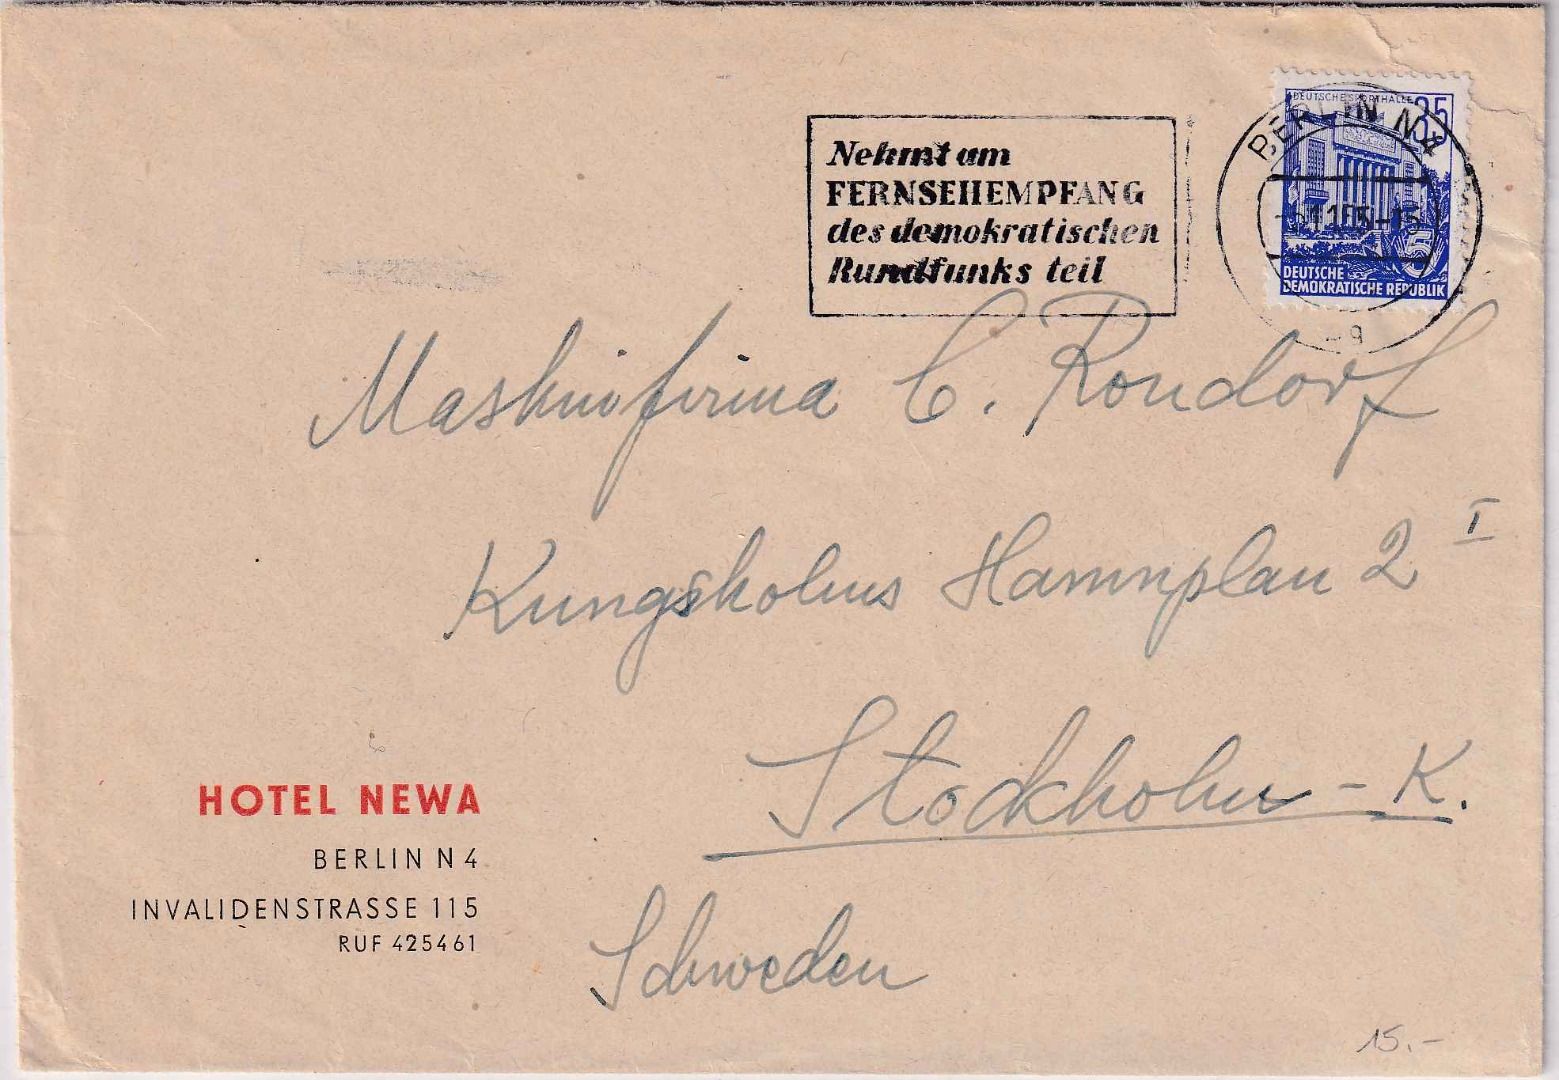 Nehmt am
FERNSEHEMPFANG
des demokratischen
Rundfunks teil
BERLIN N 4
DEUTSCHE SPORTHALLE
35
5
DEUTSCHE
DEMOKRATISCHE REPUBLIK
Maskinfirma C. Rondorf
Kungsholms Hamnplan 2 I
Stockholm - K.
Schweden
HOTEL NEWA
BERLIN N 4
INVALIDENSTRASSE 115
RUF 425461
15.-